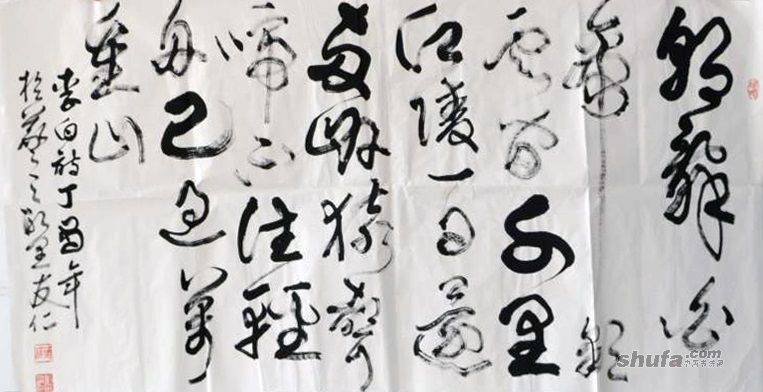 朝辭白
帝彩
云間千里
江陵一日還
兩岸猿聲
啼不住輕
舟已過萬
重山
李白詩丁年
於之里友仁
shufa.com